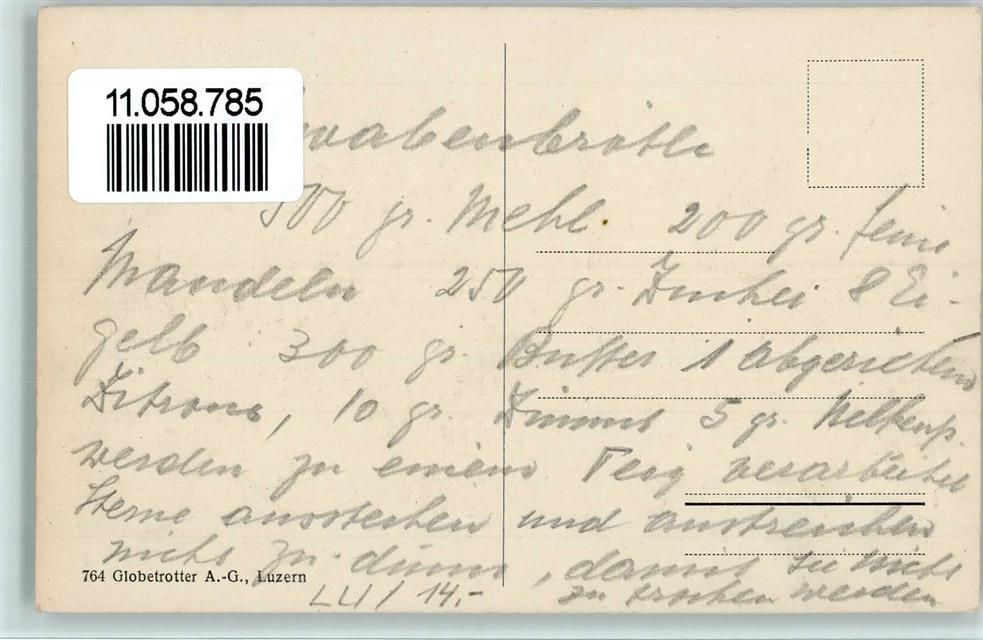 11.058.785
wabenbrötli
500 gr. Mehl. 200 gr. feine
Mandeln 250 gr. Zucker 8 Ei-
gelb 300 gr. Butter 1 abgerieben
Zitrone, 10 gr. Zimmt 5 gr. Nelkenp.
werden zu einem Teig verarbeitet
Sterne ausstechen und anstreichen
nicht zu dünn, damit sie nicht
zu trocken werden
764 Globetrotter A.-G., Luzern
LU / 14.-